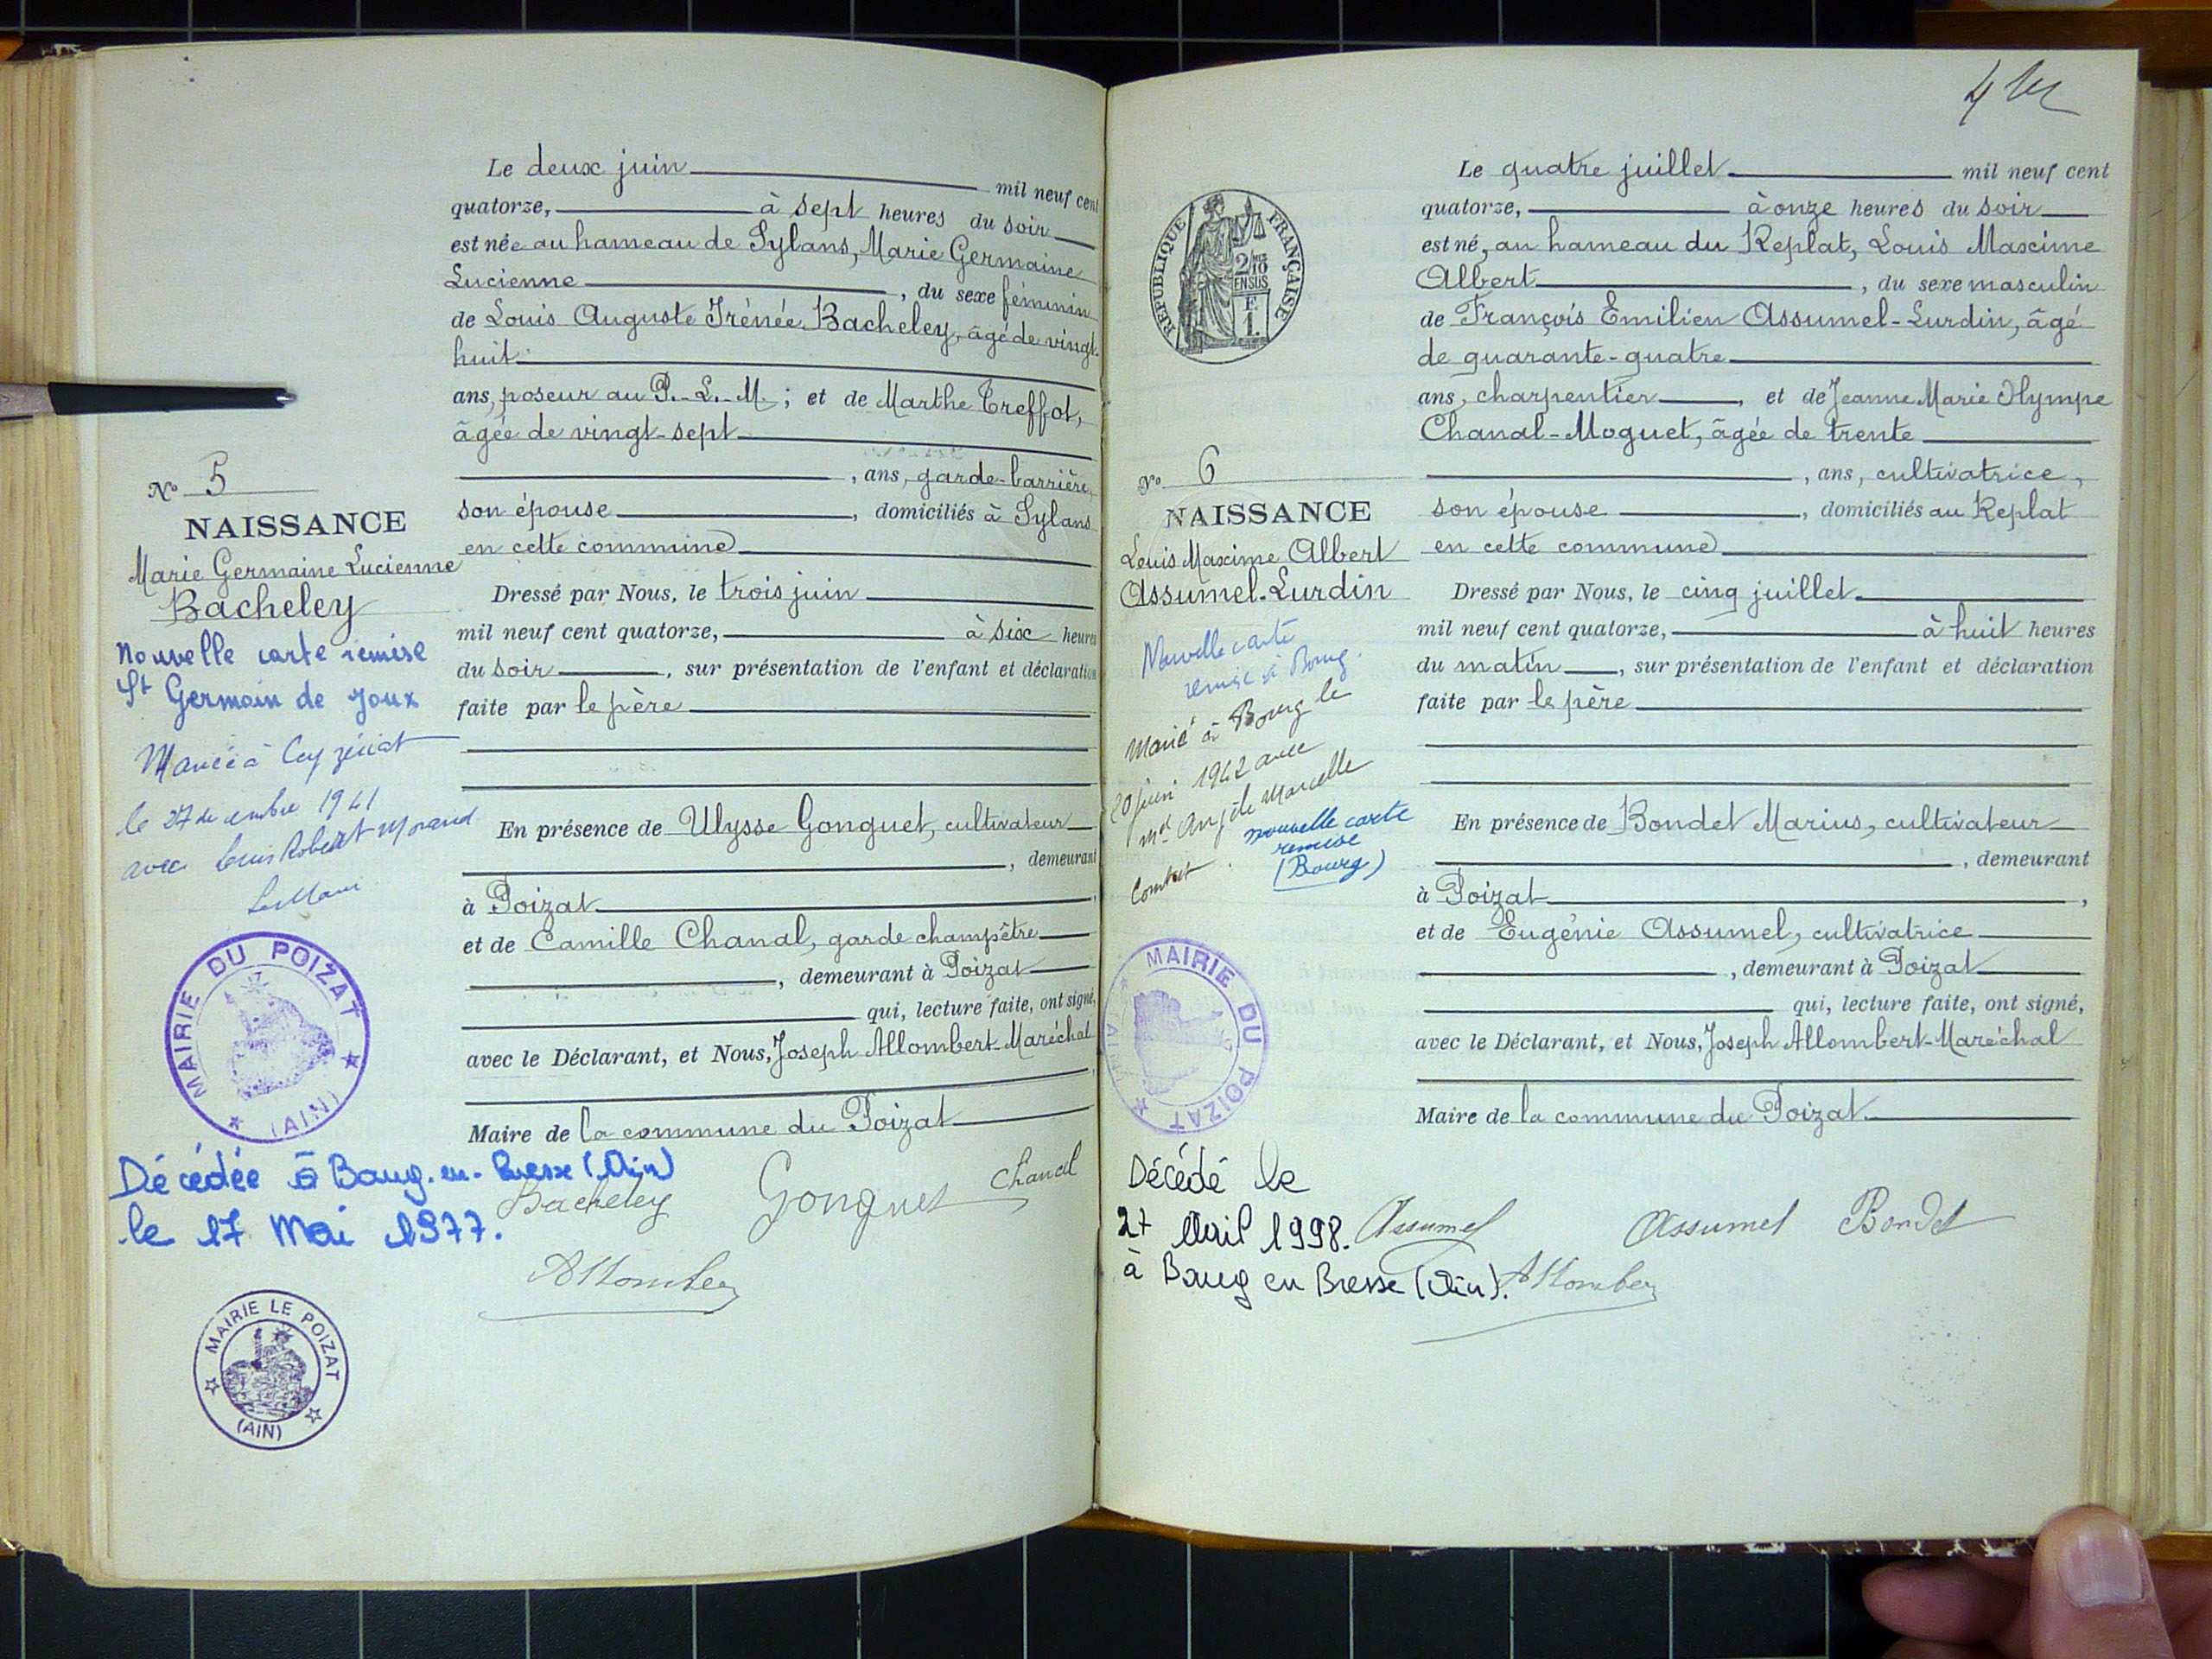 Le deux juin mil neuf cent
quatorze, à sept heures du soir
est née au hameau de Sylans, Marie Germaine
Lucienne, du sexe féminin
de Louis Auguste Irénée Bacheley, âgé de vingt-
huit
ans, poseur au P.-L.-M.; et de Marthe Treffot,
âgée de vingt-sept
, ans, garde-barrière,
son épouse, domiciliés à Sylans
en cette commune
Dressé par Nous, le trois juin
mil neuf cent quatorze, à six heures
du soir, sur présentation de l'enfant et déclaration
faite par le père
En présence de Ulysse Gonguet, cultivateur
, demeurant
à Poizat,
et de Camille Chanal, garde champêtre
, demeurant à Poizat
qui, lecture faite, ont signé,
avec le Déclarant, et Nous, Joseph Allombert-Maréchal
Maire de la commune du Poizat
Bacheley Gonguet Chanal
Allombert
No 5
NAISSANCE
Marie Germaine Lucienne
Bacheley
Nouvelle carte remise
St Germain de Joux
Mariée à Ceyzériat
le 27 décembre 1941
avec Louis Robert Morand
MAIRIE DU POIZAT
(AIN)
Décédée à Bourg-en-Bresse (Ain)
le 17 Mai 1977.
MAIRIE LE POIZAT
(AIN)
4
Le quatre juillet mil neuf cent
quatorze, à onze heures du soir
est né, au hameau du Replat, Louis Maxime
Albert, du sexe masculin
de François Emilien Assumel-Lurdin, âgé
de quarante-quatre
ans, charpentier, et de Jeanne Marie Olympe
Chanal-Moguet, âgée de trente
, ans, cultivatrice,
son épouse, domiciliés au Replat
en cette commune
Dressé par Nous, le cinq juillet
mil neuf cent quatorze, à huit heures
du matin, sur présentation de l'enfant et déclaration
faite par le père
En présence de Bondet Marius, cultivateur
, demeurant
à Poizat,
et de Eugénie Assumel, cultivatrice
, demeurant à Poizat
qui, lecture faite, ont signé,
avec le Déclarant, et Nous, Joseph Allombert-Maréchal
Maire de la commune du Poizat
Assumel Assumel Bondet
Allombert
RÉPUBLIQUE FRANÇAISE
2/10
EN SUS
F
1.
No 6
NAISSANCE
Louis Maxime Albert
Assumel-Lurdin
Nouvelle carte
remise à Bourg.
Marié à Bourg le
20 juin 1942 avec
Angèle Marcelle
nouvelle carte
remise
(Bourg)
MAIRIE DU POIZAT
(AIN)
Décédé le
27 Avril 1998.
à Bourg en Bresse (Ain).